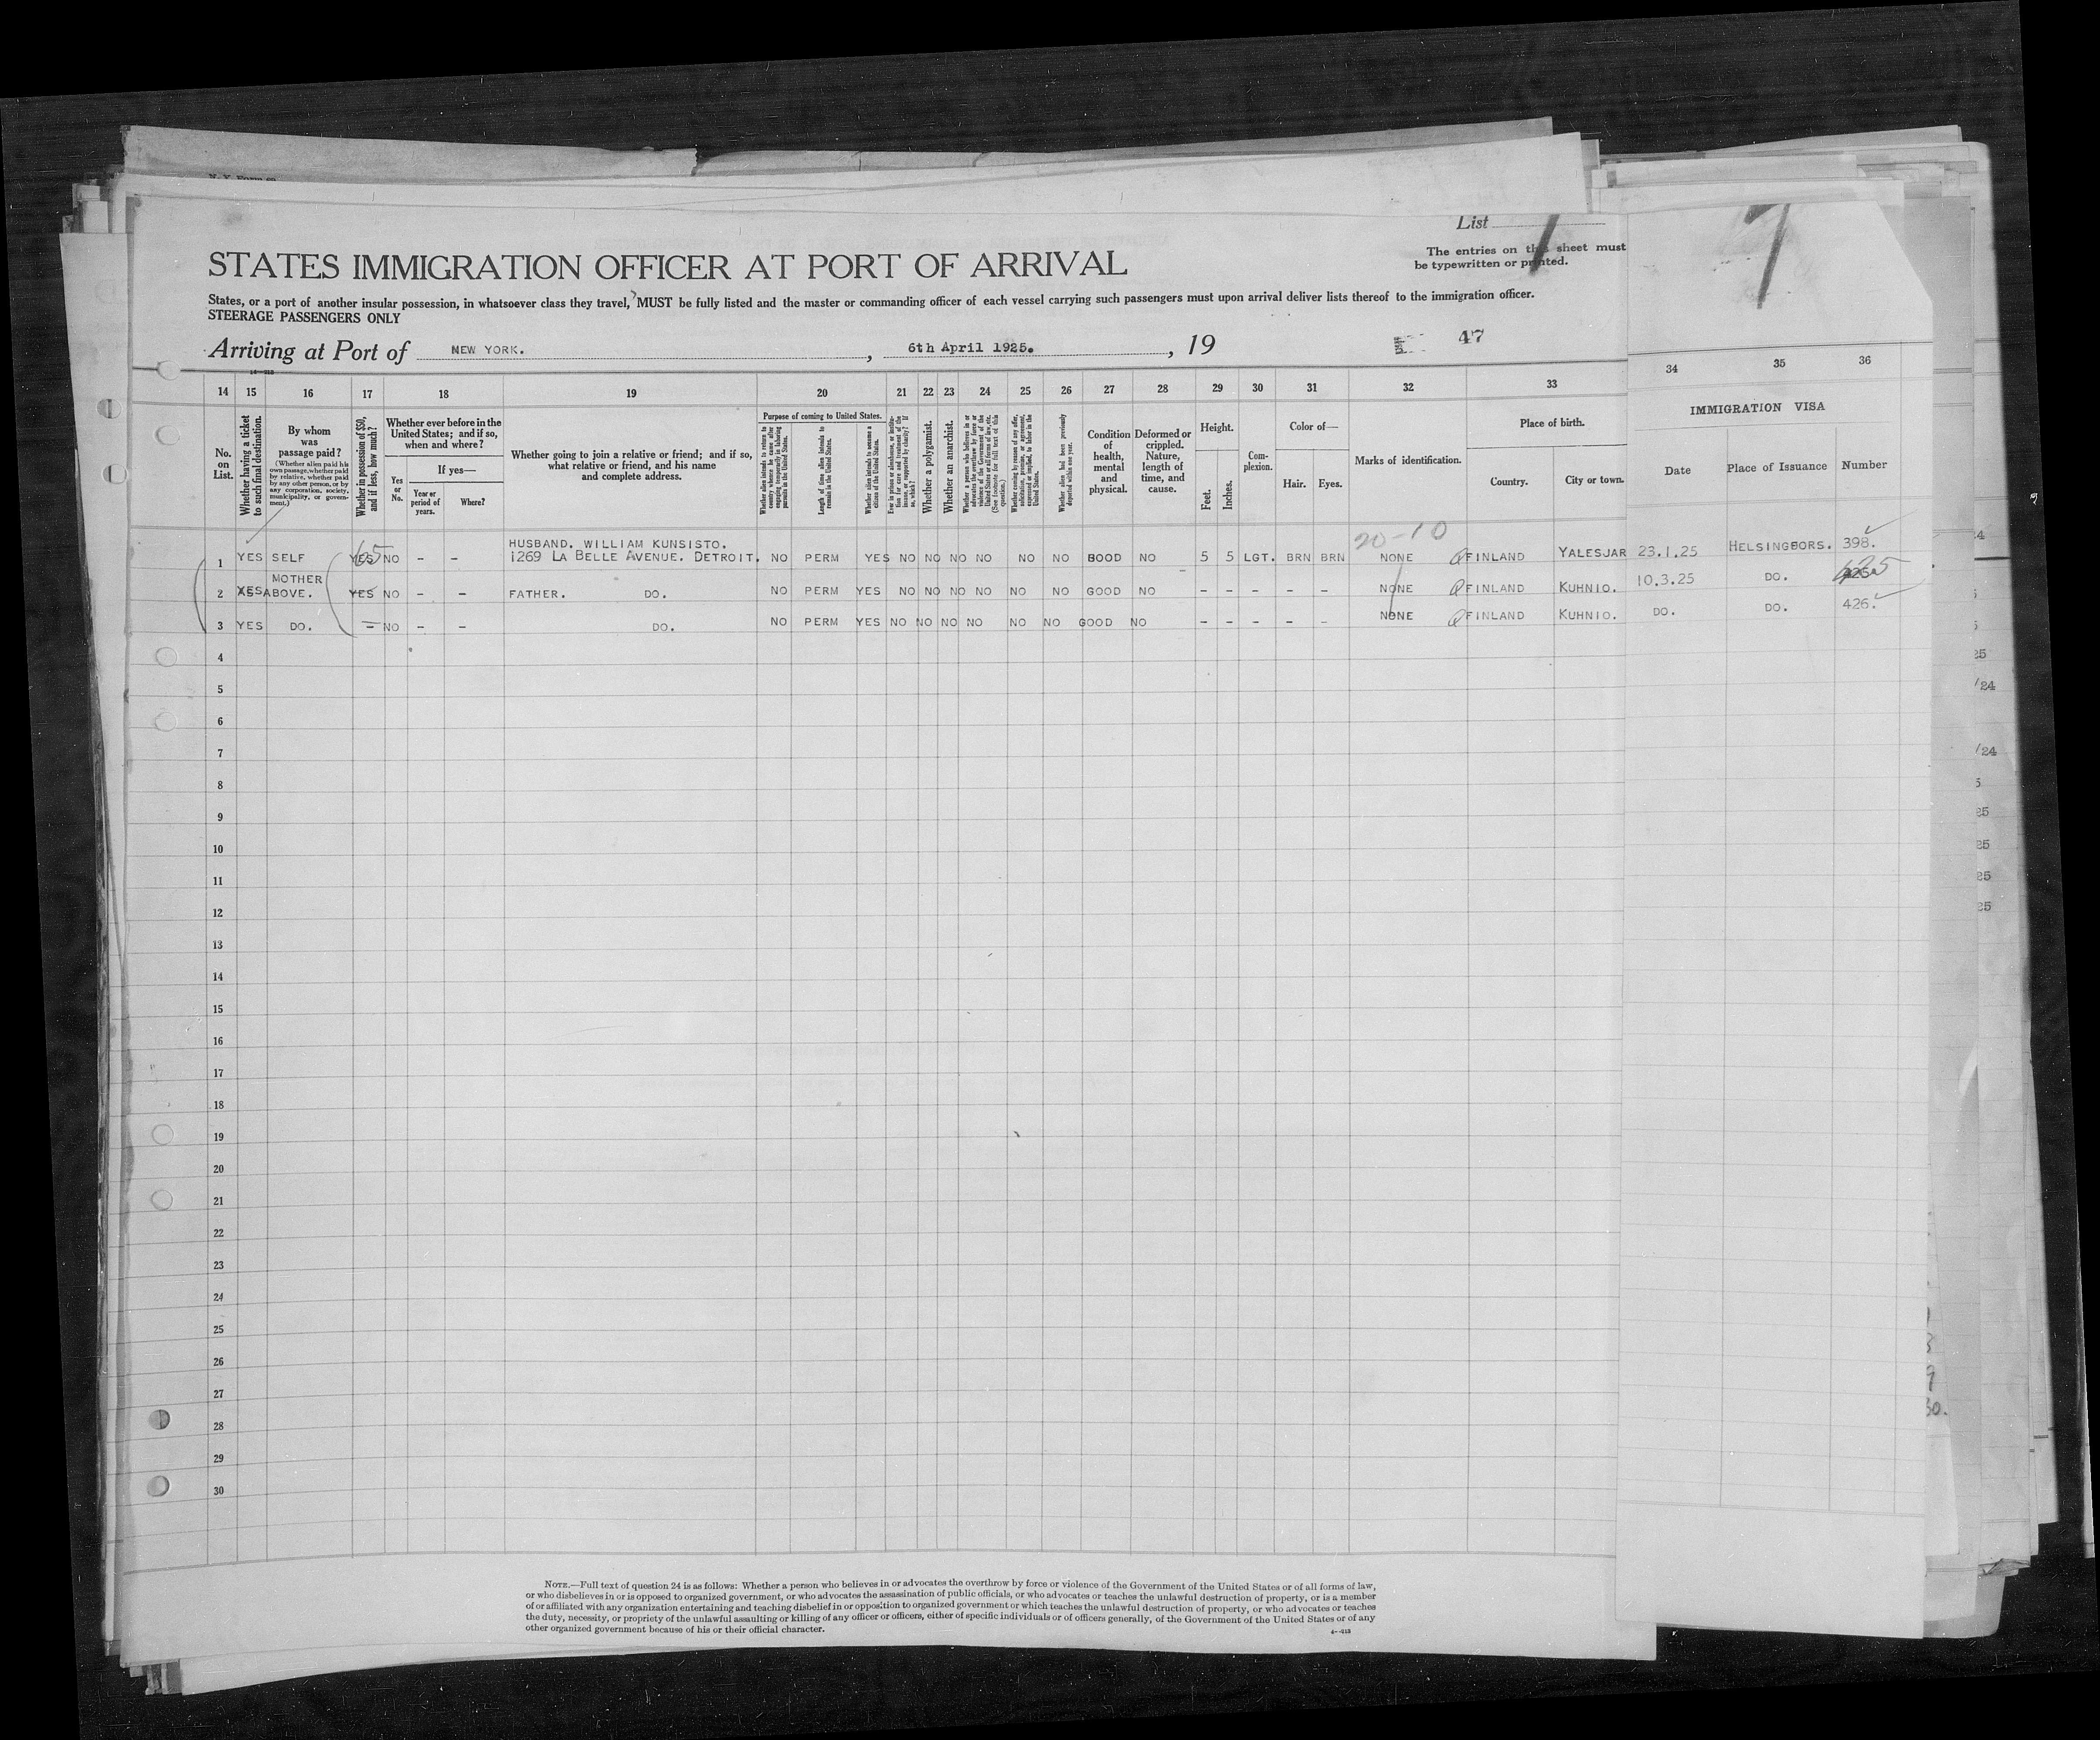 List
The entries on this sheet must
be typewritten or printed.
STATES IMMIGRATION OFFICER AT PORT OF ARRIVAL
States, or a port of another insular possession, in whatsoever class they travel, MUST be fully listed and the master or commanding officer of each vessel carrying such passengers must upon arrival deliver lists thereof to the immigration officer.
STEERAGE PASSENGERS ONLY
Arriving at Port of NEW YORK. , 6th April 1925. , 19 47
14 15 16 17 18 19 20 21 22 23 24 25 26 27 28 29 30 31 32 33 34 35 36
No. on List.
Whether having a ticket to such final destination.
By whom was passage paid?
(Whether alien paid his own passage, whether paid by relative, whether paid by any other person, or by any corporation, society, municipality, or government.)
Whether in possession of $50, and if less, how much?
Whether ever before in the United States; and if so, when and where?
Yes or No.
If yes—
Year or period of years.
Where?
Whether going to join a relative or friend; and if so, what relative or friend, and his name and complete address.
Purpose of coming to United States.
Whether alien intends to return to country whence he came after engaging temporarily in laboring pursuits in the United States.
Length of time alien intends to remain in the United States.
Whether alien intends to become a citizen of the United States.
Ever in prison or almshouse, or institution for care and treatment of the insane, or supported by charity? If so, which?
Whether a polygamist.
Whether an anarchist.
Whether a person who believes in or advocates the overthrow by force or violence of the Government of the United States or all forms of law, etc. (See footnote for full text of this question.)
Whether coming by reason of any offer, solicitation, promise, or agreement, expressed or implied, to labor in the United States.
Whether alien had been previously deported within one year.
Condition of health, mental and physical.
Deformed or crippled. Nature, length of time, and cause.
Height.
Feet.
Inches.
Complexion.
Color of—
Hair. Eyes.
Marks of identification.
Place of birth.
Country. City or town.
IMMIGRATION VISA
Date Place of Issuance Number
20-10
HUSBAND. WILLIAM KUNSISTO.
1 YES SELF YES 65 NO - - 1269 LA BELLE AVENUE. DETROIT. NO PERM YES NO NO NO NO NO NO GOOD NO 5 5 LGT. BRN BRN NONE FINLAND YALESJAR 23.1.25 HELSINGBORS. 398.
MOTHER
2 YES ABOVE. YES NO - - FATHER. DO. NO PERM YES NO NO NO NO NO NO GOOD NO - - - - - NONE FINLAND KUHNIO. 10.3.25 DO. 425
3 YES DO. - NO - - DO. NO PERM YES NO NO NO NO NO NO GOOD NO - - - - - NONE FINLAND KUHNIO. DO. DO. 426.
4
5
6
7
8
9
10
11
12
13
14
15
16
17
18
19
20
21
22
23
24
25
26
27
28
29
30
NOTE.—Full text of question 24 is as follows: Whether a person who believes in or advocates the overthrow by force or violence of the Government of the United States or of all forms of law,
or who disbelieves in or is opposed to organized government, or who advocates the assassination of public officials, or who advocates or teaches the unlawful destruction of property, or is a member
of or affiliated with any organization entertaining and teaching disbelief in or opposition to organized government or which teaches the unlawful destruction of property, or who advocates or teaches
the duty, necessity, or propriety of the unlawful assaulting or killing of any officer or officers, either of specific individuals or of officers generally, of the Government of the United States or of any
other organized government because of his or their official character.